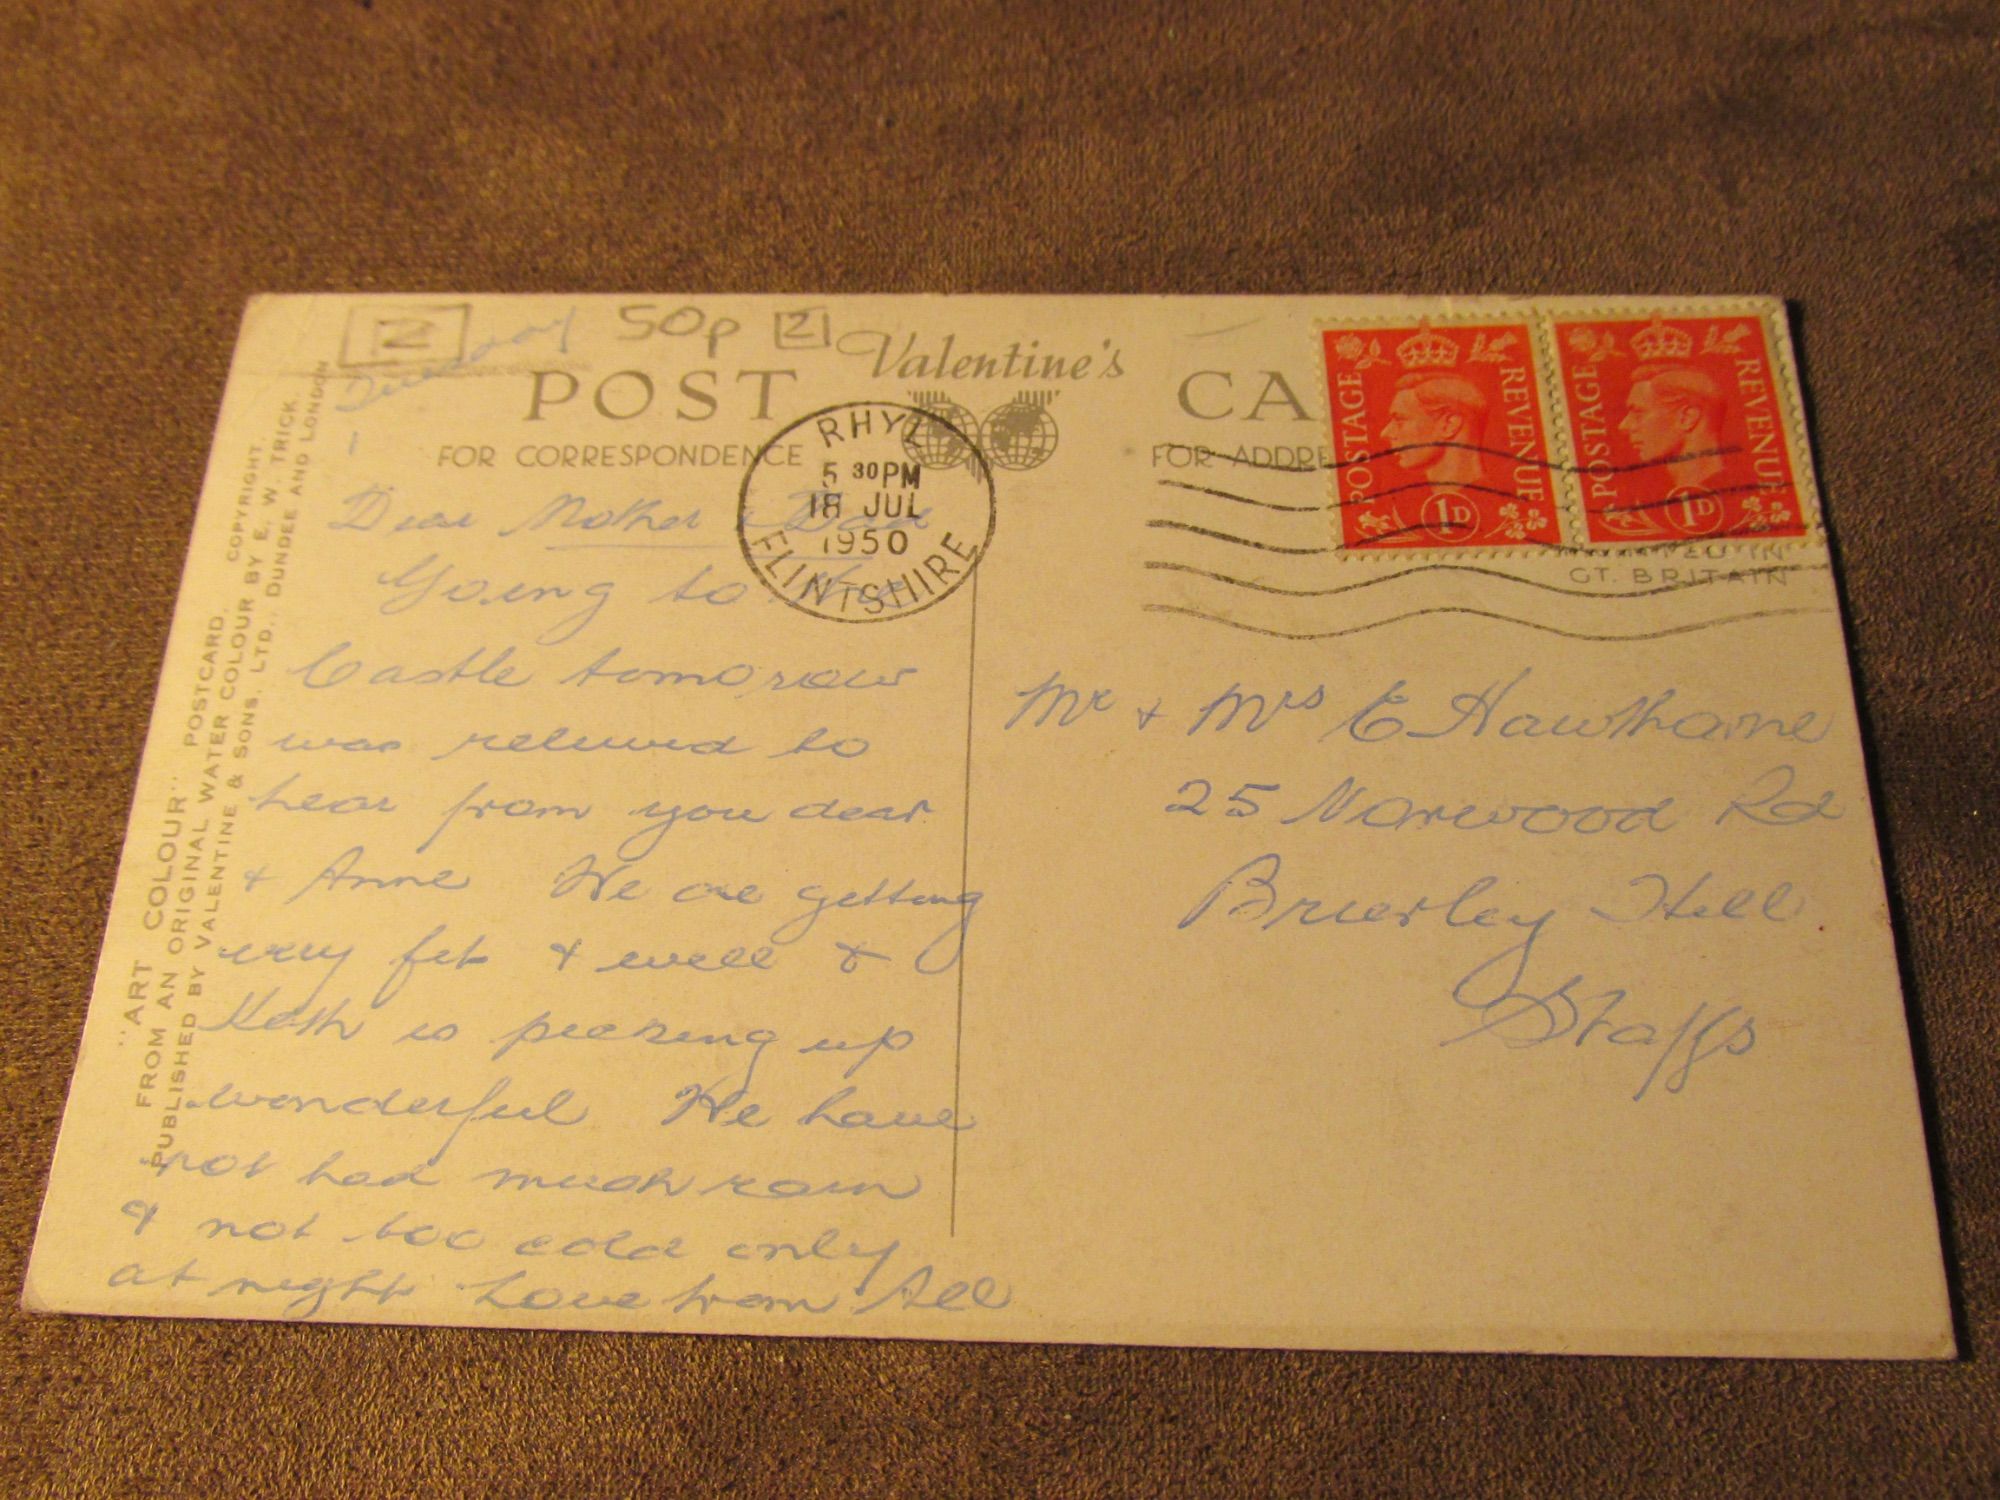 2
50p
2
Tuesday
Valentine's
POST CA
FOR CORRESPONDENCE
FOR ADDRE
RHYL
5 30 PM
18 JUL
1950
FLINTSHIRE
POSTAGE REVENUE
1D
POSTAGE REVENUE
1D
GT. BRITAIN
"ART COLOUR" POSTCARD.
FROM AN ORIGINAL WATER COLOUR BY E. W. TRICK.
COPYRIGHT.
PUBLISHED BY VALENTINE & SONS, LTD., DUNDEE AND LONDON
Dear Mother & Dad
Going to
Castle tomorow
was relieved to
hear from you dear
& Anne We are getting
very fit & well &
Keith is picking up
wonderful We have
not had much rain
& not too cold only
at night Love from All
Mr + Mrs E Hawthorne
25 Norwood Rd
Brierley Hill
Staffs